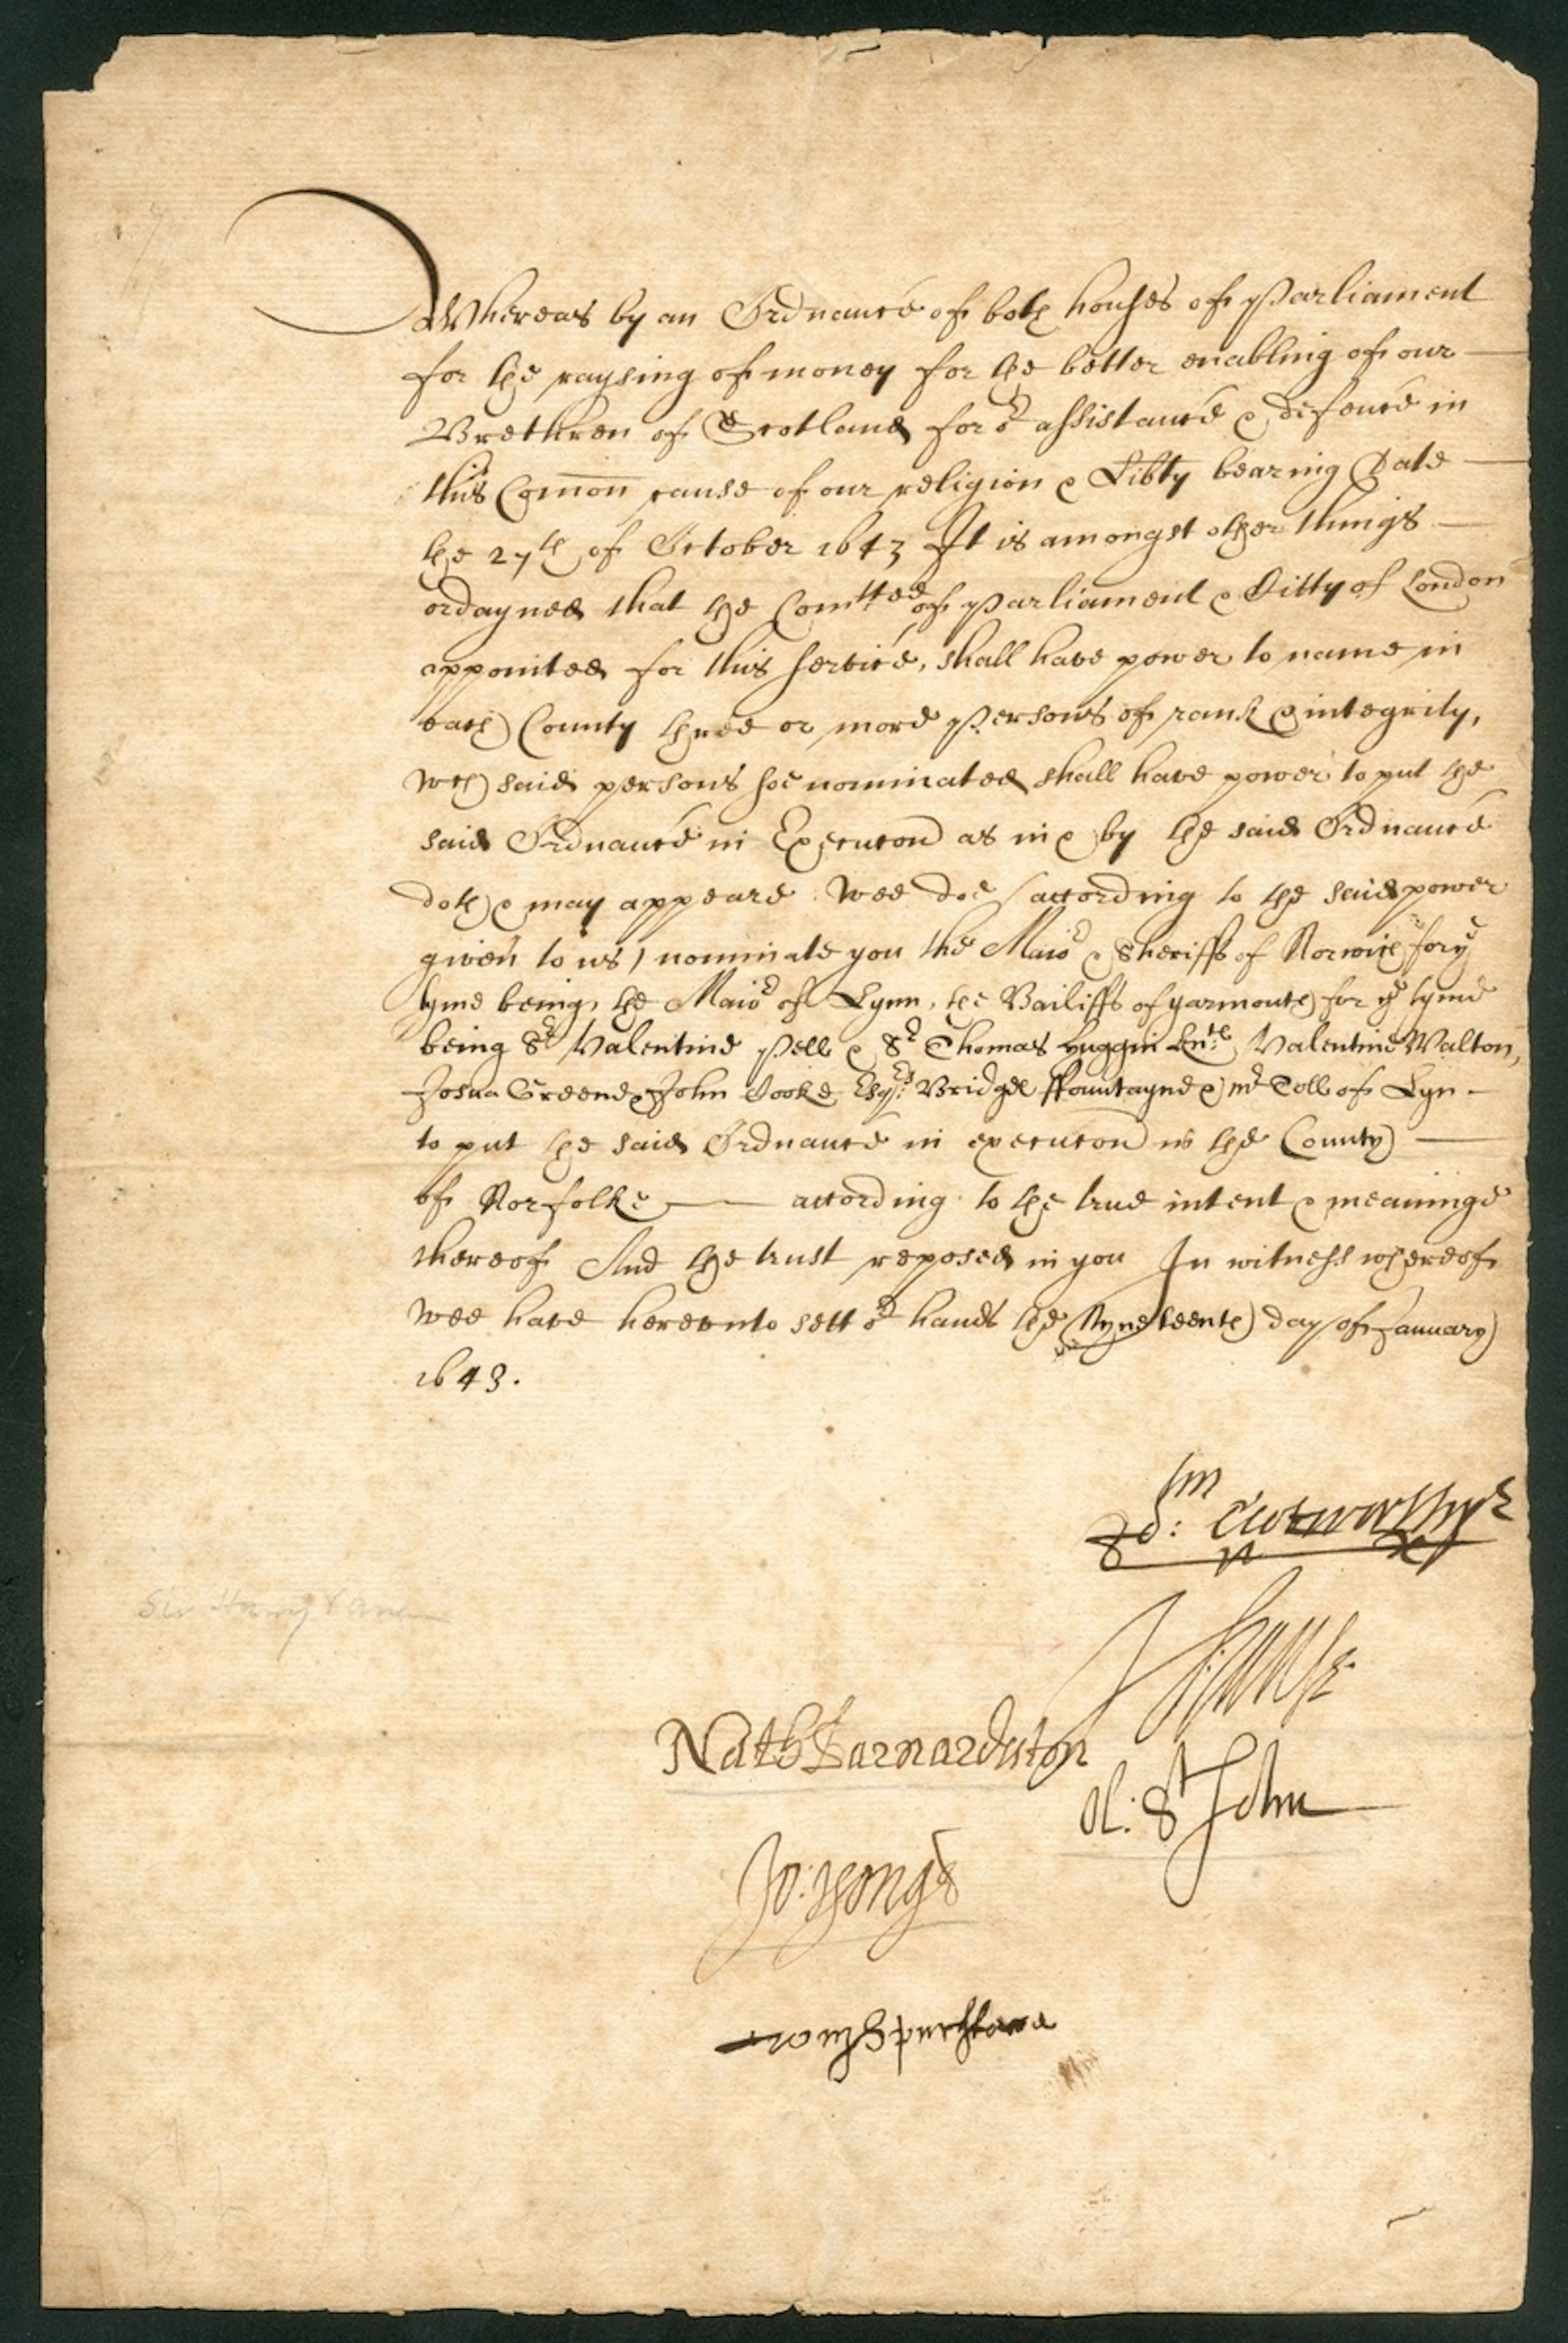 Whereas by an Ordnance of both houses of Parliament
for the raysing of money for the better enabling of our
Brethren of Scotland for or assistance & defence in
this Comon cause of our religion & Libty bearing Date
the 27th of October 1643 It is amongst other things
ordayned that the Comttee of Parliament & Citty of London
appointed for this service, shall have power to name in
each County three or more persons of rank & integrity,
wch said persons soe nominated shall have power to put the
said Ordnance in Execucon as in & by the said Ordnance
doth & may appeare Wee doe (according to the said power
given to us) nominate you the Maior & Sheriffs of Norwich for ye
tyme being, the Maior of Lynn, the Bailiffs of yarmouth for ye tyme
being Sr Valentine Pell & Sr Thomas huggin Knts Valentine Walton,
Josua Greene & John Cooke Esqrs Bridgd ffountayne & mr Toll of Lyn
to put the said Ordnance in execucon in the County
of Norfolke according to the true intent & meaninge
thereof And the trust reposed in you In witness whereof
wee have hereunto sett or hands the Nyneteenth day of January
1643.
Jo: Clotworthy
H Vane
Sir Harry Vane
Nath Barnardiston
Ol: St John
Jo: yonge